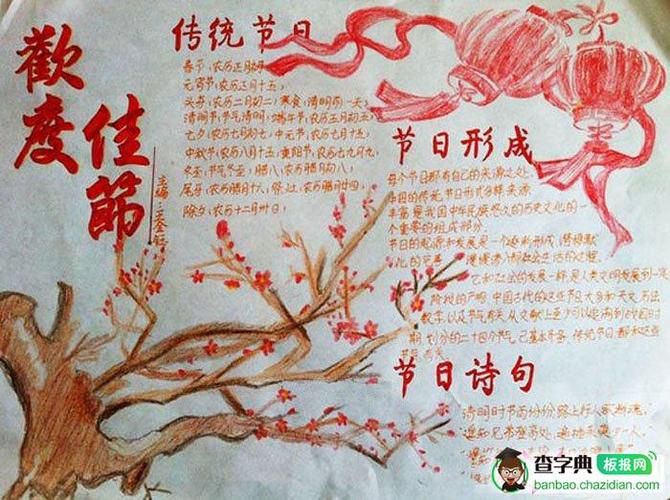 歡度
佳節
主编:王金钰
传统节日
春节,农历正月初一
元宵节,农历正月十五;
头牙,农历二月初二;寒食,清明前一天;
清明节,节气清明;端午节,农历五月初五
七夕,农历七月初七;中元节,农历七月十五,
中秋节,农历八月十五;重阳节,农历九月九,
冬至,节气冬至;腊八,农历腊月初八;
尾牙,农历腊月十六,祭灶,农历腊月廿四,
除夕,农历十二月卅日;
节日形成
每个节日都有自己的来源之处,
中国的传统节日形式多样,来源
丰富,是我国中华民族悠久的历史文化的一
个重要的组成部分.
节日的起源和发展是一个逐渐形成,潜移默
化的完善,慢慢渗入到社会生活的过程.
它和社会的发展一样,是人类文明发展到一定
阶段的产物,中国古代的这些节日大多和天文,历法
数学,以及节气有关,从文献上至少可以追溯到战国时
期,划分的二十四个节气,已基本齐备,传统节日都和这些
节气有关
节日诗句
清明时节雨纷纷,路上行人欲断魂,
遥知兄弟登高处,遍插茱萸少一人,
查字典 板报网
banbao.chazidian.com